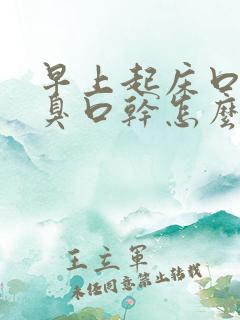 早上起床口
臭口幹怎麼
王立軍
未經同意禁止轉載